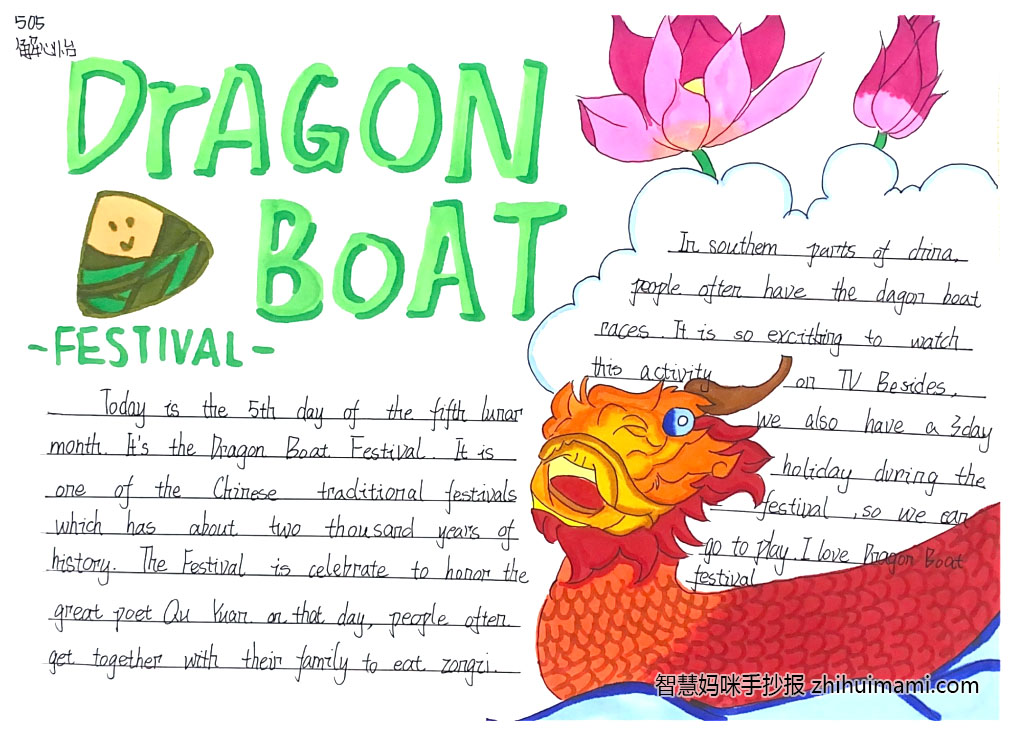 505
解心怡
DrAGON
BoAT
-FESTIVAL-
Today is the 5th day of the fifth lunar
month. It's the Dragon Boat Festival. It is
one of the Chinese traditional festivals
which has about two thousand years of
history. The Festival is celebrate to honor the
great poet Qu Yuan on that day, people often
get together with their family to eat zongzi.
In southern parts of china,
people often have the dagon boat
races. It is so excithing to watch
this activity on TV Besides,
we also have a 3day
holiday during the
festival, so we can
go to play I love Dragon Boat
festival
智慧妈咪手抄报 zhihuimami.com